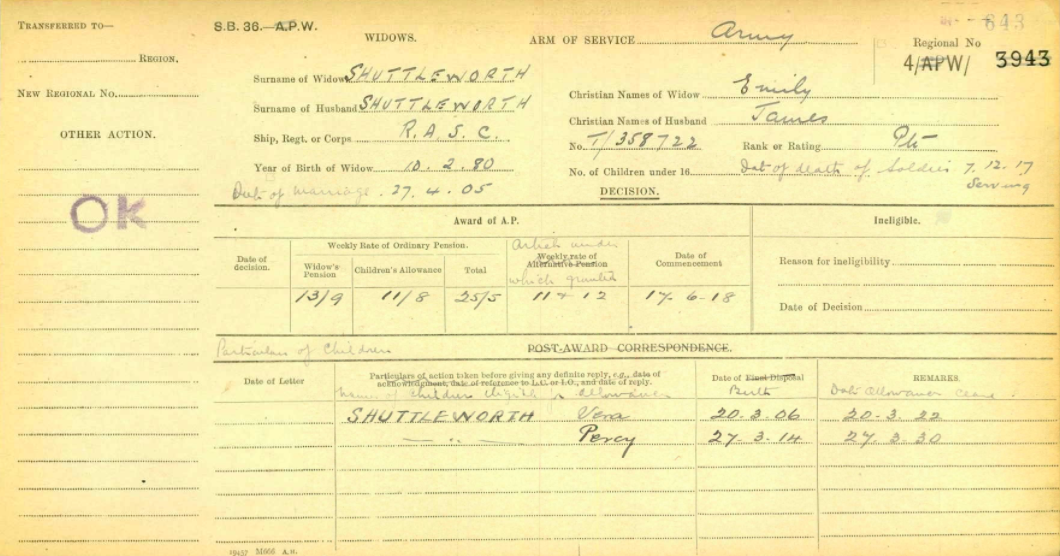 TRANSFERRED TO—
REGION.
NEW REGIONAL No.
OTHER ACTION.
OK
S.B. 36.—A.P.W.
WIDOWS.
ARM OF SERVICE Army
643
Regional No
4/APW/ 3943
Surname of Widow SHUTTLEWORTH
Christian Names of Widow Emily
Surname of Husband SHUTTLEWORTH
Christian Names of Husband James
Ship, Regt. or Corps R.A.S.C.
No. T/358722
Rank or Rating Pte
Year of Birth of Widow 10.2.80
No. of Children under 16 Dat of death of Soldier 7.12.17
Serving
Date of marriage. 27.4.05
DECISION.
Award of A.P.
Ineligible.
Date of decision.
Weekly Rate of Ordinary Pension.
Widow's Pension
Children's Allowance
Total
Article under
Weekly rate of Alternative Pension
which granted
Date of Commencement
Reason for ineligibility
Date of Decision
13/9 11/8 25/5 11 & 12 17.6.18
Particulars of Children
POST-AWARD CORRESPONDENCE.
Date of Letter
Particulars of action taken before giving any definite reply, e.g., date of
acknowledgment, date of reference to L.C. or I.O., and date of reply.
Names of Children eligible for allowance
Date of Final Disposal
Birth
REMARKS.
Date Allowance Cease
SHUTTLEWORTH Vera 20.3.06 20.3.22
— " — Percy 27.3.14 27.3.30
19457 M666 A.H.